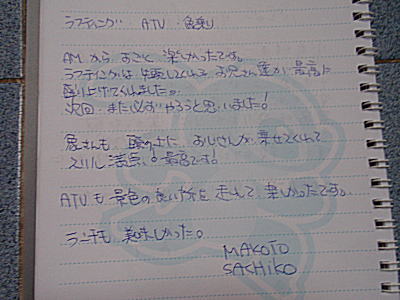 ラフティング ATV 象乗り
AMから すごく 楽しかったです。
ラフティングは 一緒にしてくれた お兄さん達が 最高に
盛り上げてくれました。
次回、また必ず やろうと思いました!
象さんも 頭の上に おじさんが 乗せてくれて
スリル満点! 最高です!
ATVも 景色の良い所を 走れて 楽しかったです。
ランチも 美味しかった。
MAKOTO
SACHIKO